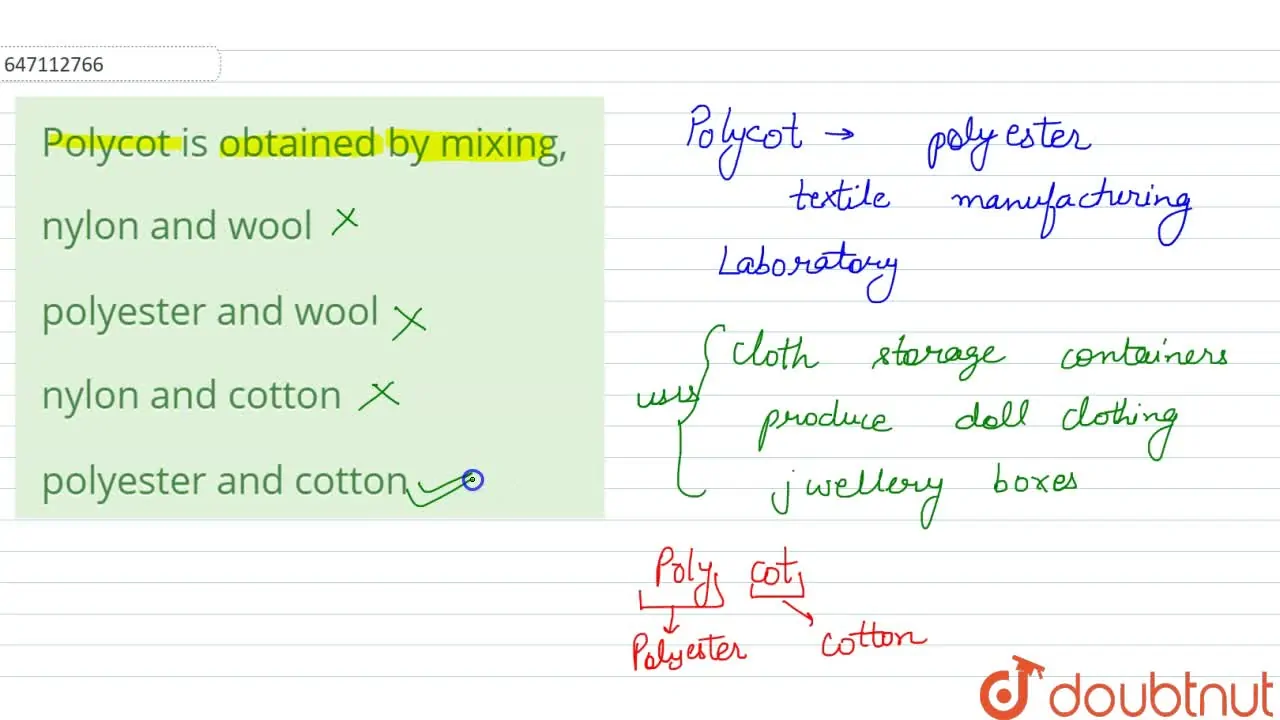 647112766
Polycot is obtained by mixing,
nylon and wool
polyester and wool
nylon and cotton
polyester and cotton
Polycot → polyester
textile manufacturing
Laboratory
uses
cloth storage containers
produce doll clothing
jwellery boxes
Poly cot
Polyester cotton
doubtnut